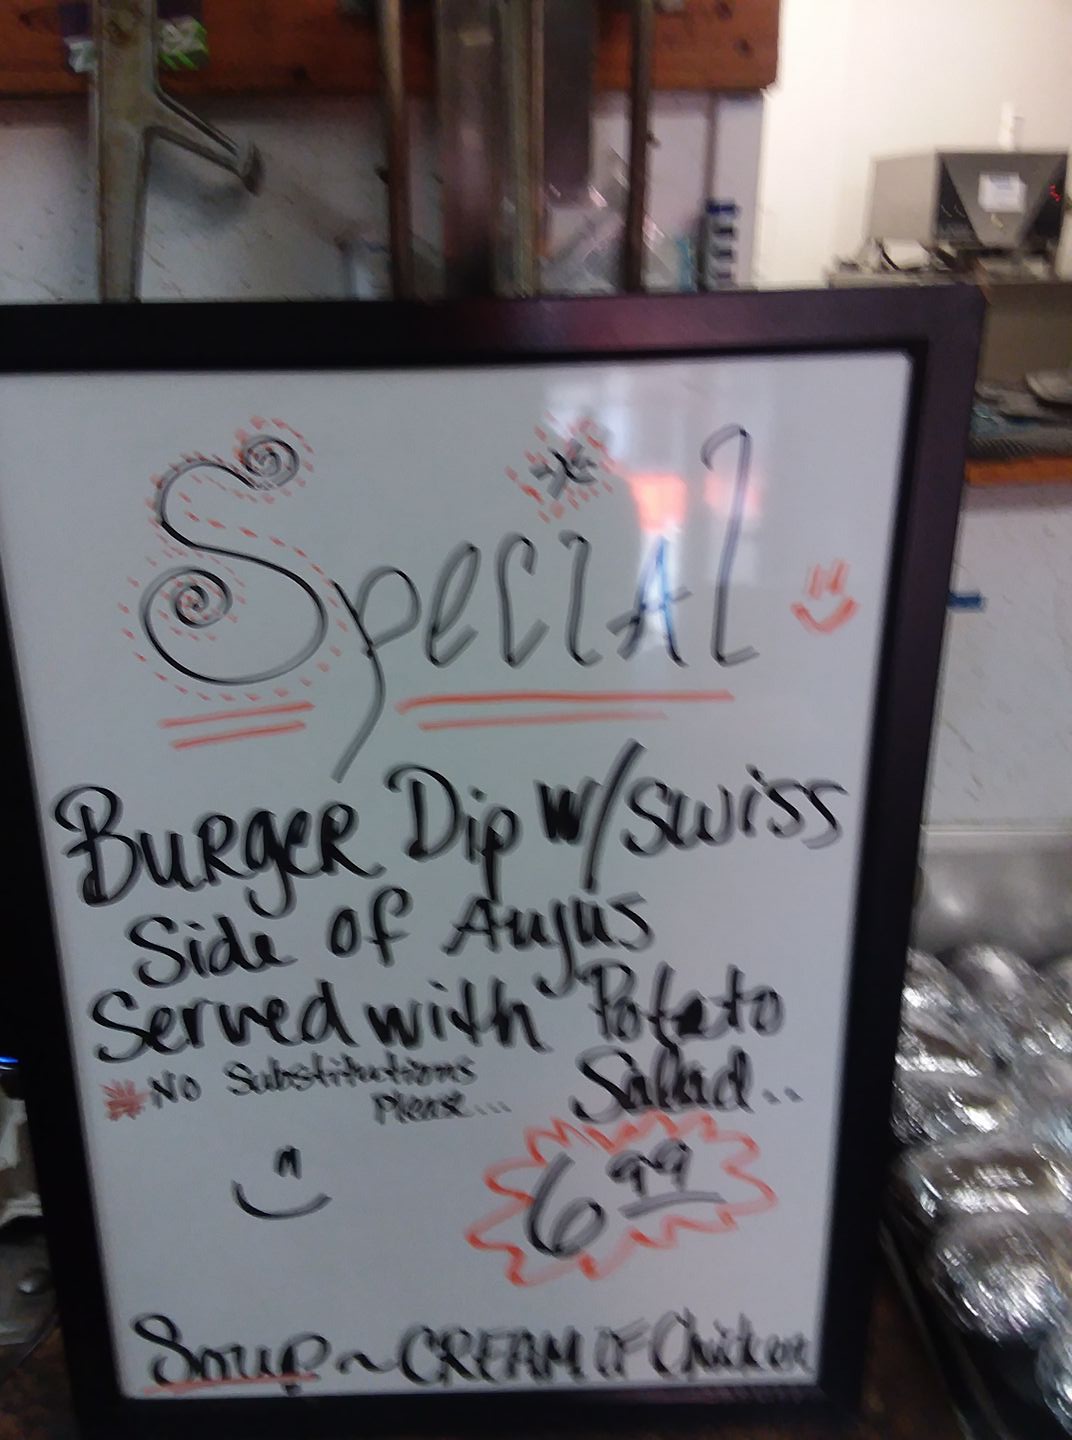 Special
Burger Dip w/ Swiss
Side of Aujus
Served with Potato
Salad..
No Substitutions
Please...
6 99
Soup ~ CREAM OF Chicken